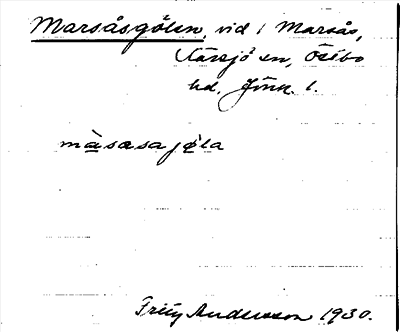 Marsåsgölen, vid 1 Marsås,
Kärsjö sn, Östbo
hd, Jönk. l.
màsasajøla
Andersson 1930.